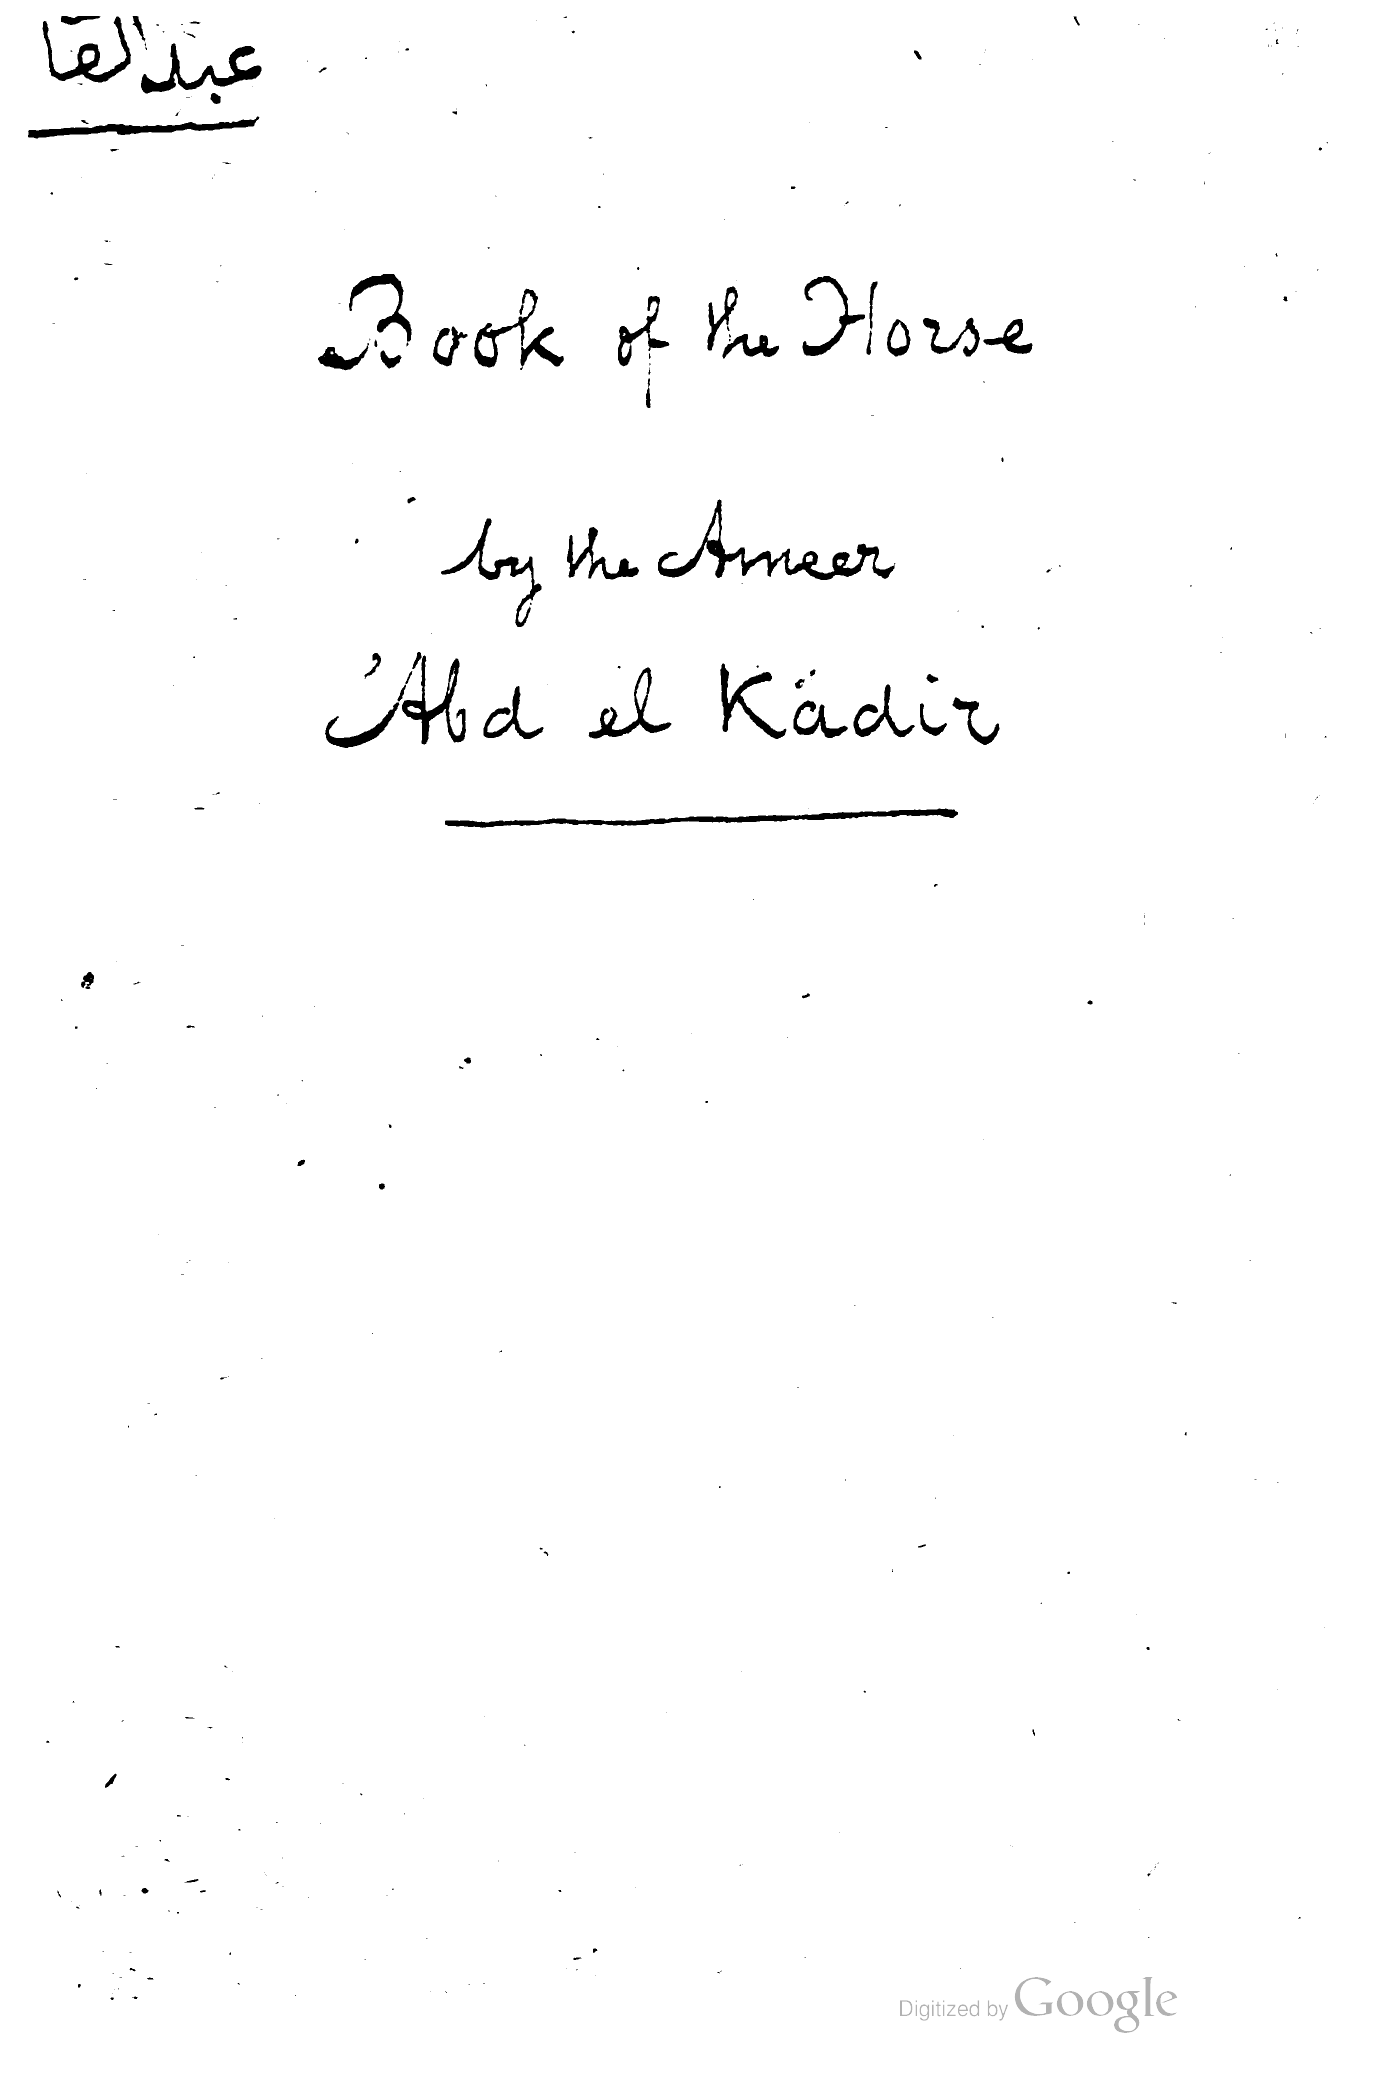 عبد القا
Book of the Horse
by the Ameer
'Abd el Kädir
Digitized by Google